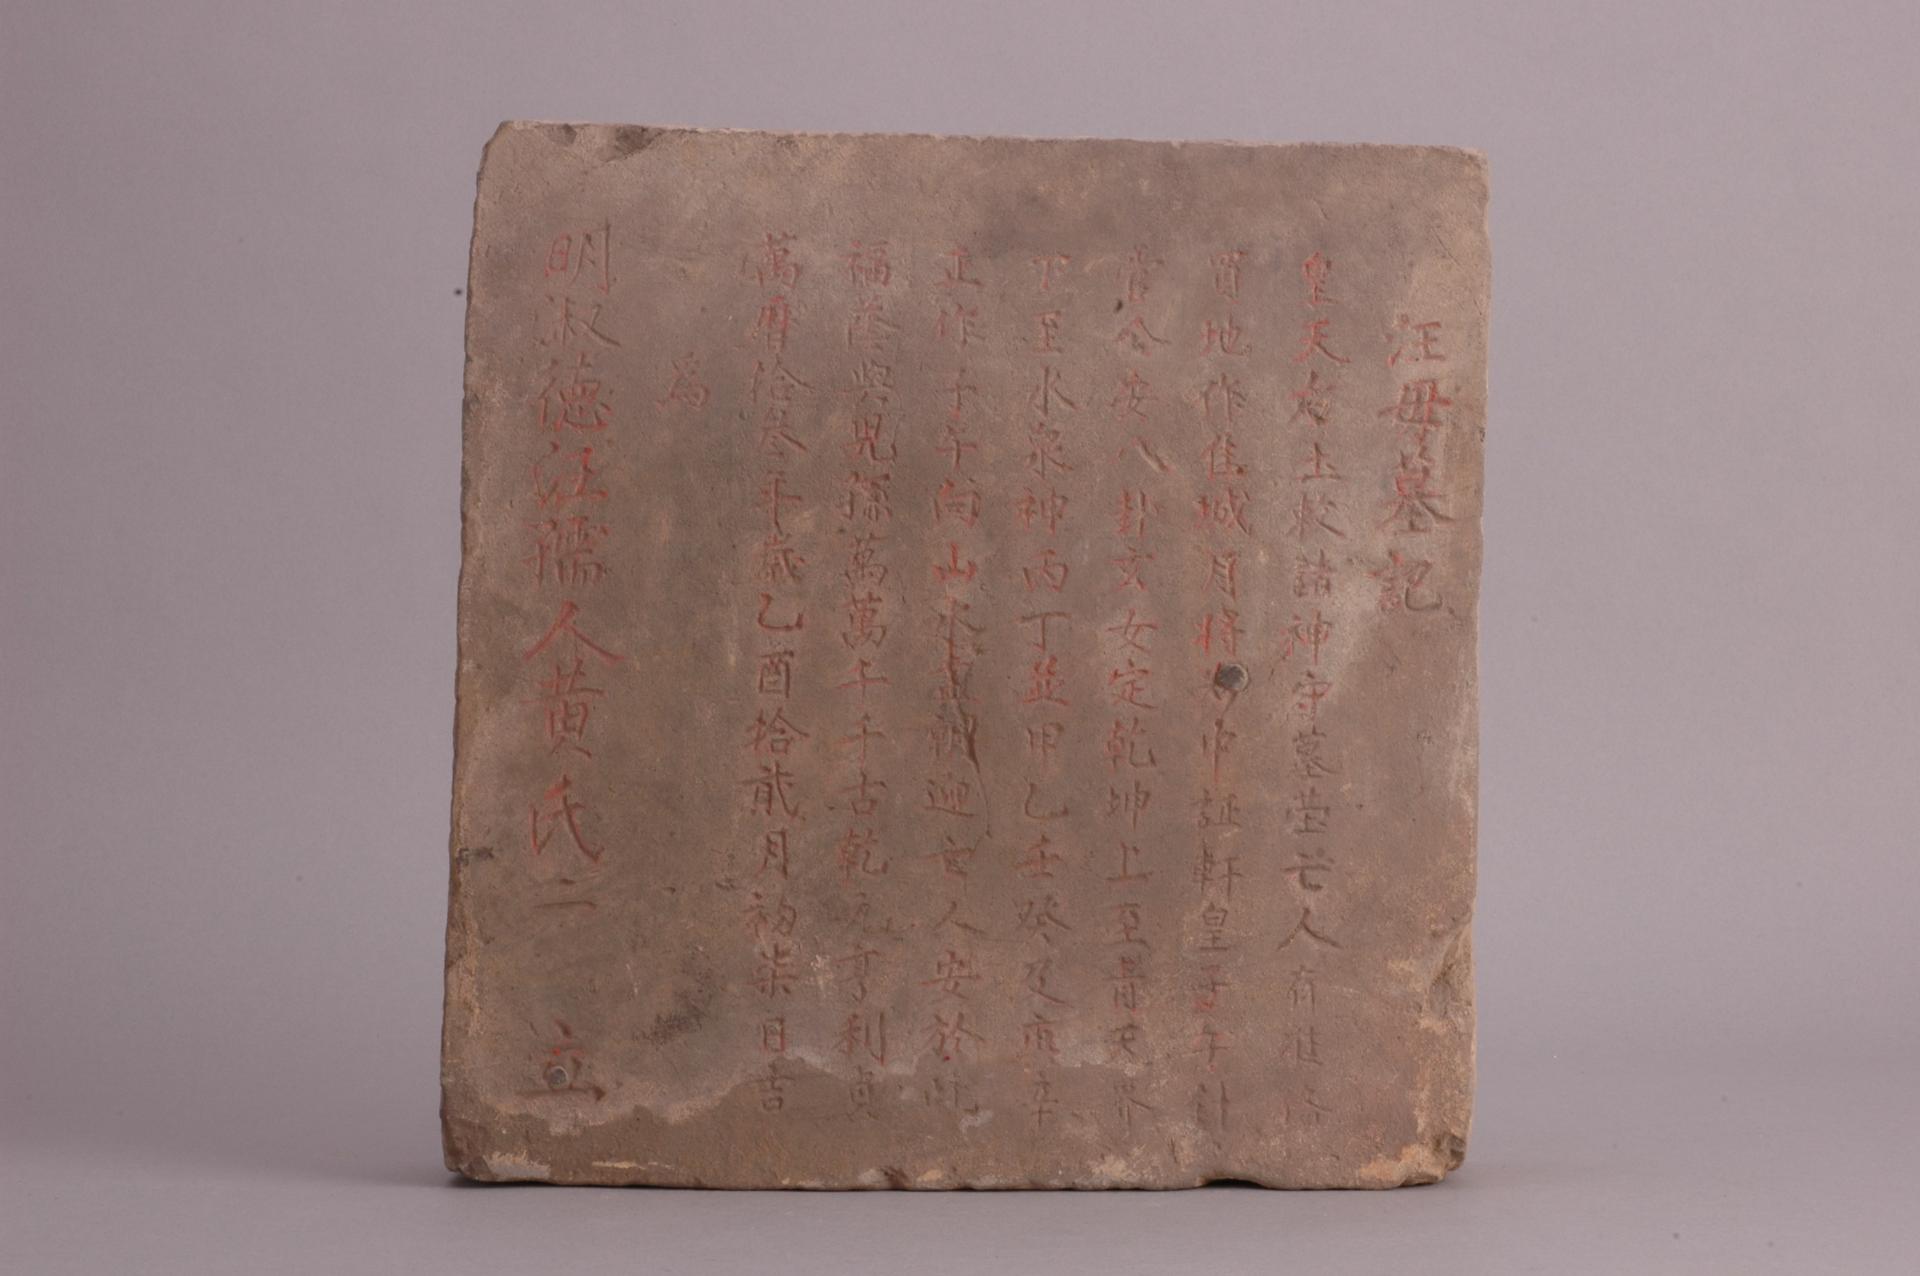 汪母墓記
皇天后土敕諸神守墓塋亡人有准
買地作佳城月將 中証軒皇子午針
當今安八卦玄女定乾坤上至青天界
下至水泉神丙丁並甲乙壬癸及庚辛
正作子午向山水盡朝迎亡人安於此
福蔭與兒孫萬萬千千古乾元亨利貞
萬曆拾叁年歲乙酉拾貮月初柒日吉
為
明淑德汪孺人黃氏二 立